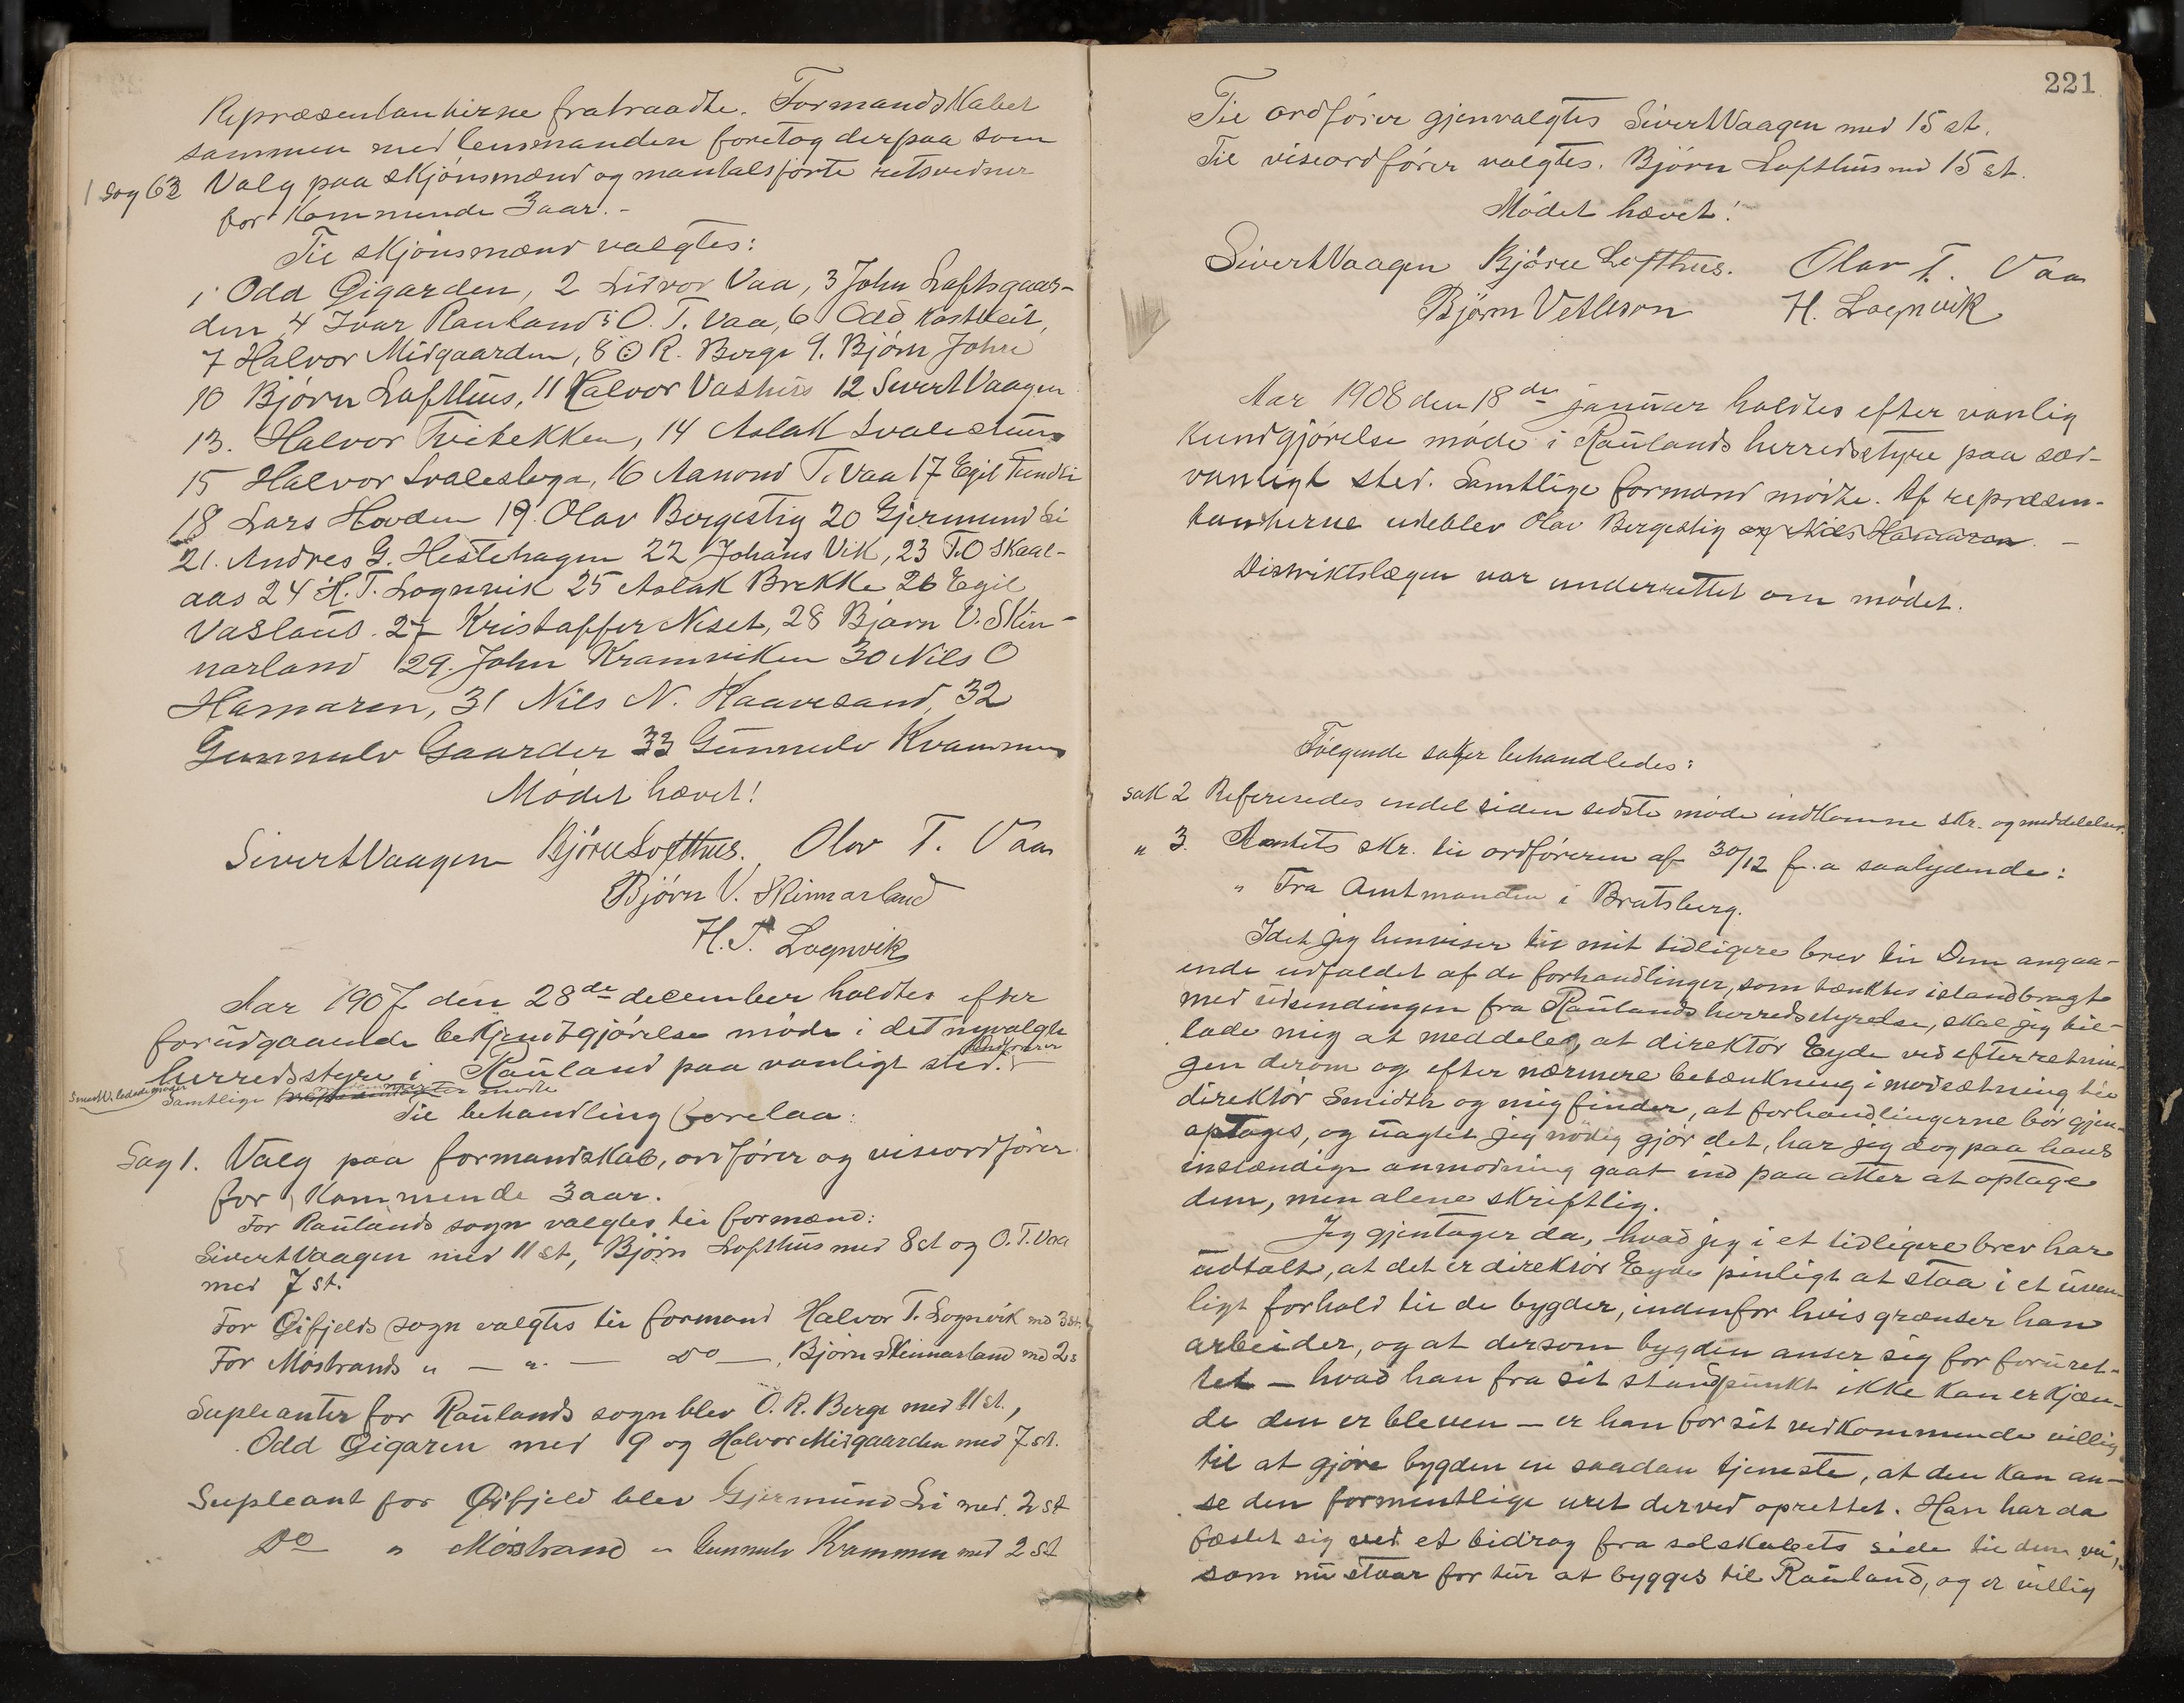 Repræsentanterne fratraadte. Formandskabet
sammen med lensmanden foretog derpaa som
sag 63 Valg paa skjønsmænd og mantalsførte retsvidner
for kommende 3 aar. -
Til skjønsmænd valgtes:
1 Odd Øigarden, 2 Lidvor Vaa, 3 John Loftsgaar-
den 4 Ivar Rauland 5 O. T. Vaa, 6 Odd Kostveit,
7 Halvor Midgaarden, 8 O R. Berge 9. Bjørn Johre
10 Bjørn Lofthus, 11 Halvor Vashus 12 Sivert Vaagen
13. Halvor Tvitekken, 14 Aslak Svalestuen
15 Halvor Svalesloga, 16 Aanond T. Vaa 17 Egil
18 Lars Hovden 19. Olav Bergestig 20 Gjermund Li
21. Andres G. Hestehagen 22 Johans Vik, 23 T.O Skaal-
aas 24 H. T. Lognvik 25 Aslak Brekke 26 Egil
Vaslaus. 27 Kristoffer Neset, 28 Bjørn V. Skin-
narland 29. John Kramviken 30 Nils O
Hamaren, 31 Nils N. Haavesand, 32
Gunnulv Gaarder 33 Gunnulv Krammen
Mødet hævet!
Sivert Vaagen Bjørn Lofthus. Olav T. Vaa
Bjørn V. Skinnarland
H. T. Lognvik
Aar 1907 den 28de december holdtes efter
forudgaaende bekjendtgjørelse møde i det nyvalgte
herredsstyre i Rauland paa vanligt sted.
Samtlige mødte
Til behandling forelaa:
Sag 1. Valg paa formandskab, ordfører og viseordfører
for kommende 3 aar.
For Raulands sogn valgtes til formænd:
Sivert Vaagen med 11 st, Bjørn Lofthus med 8 st og O. T. Vaa
med 7 st.
For Øifjelds sogn valgtes til formand Halvor T. Lognvik med 3 st.
For Møstrands " — " — Do —, Bjørn Skinnarland med 2 s
Supleanter for Raulands sogn blev O. R. Berge med 11 st.,
Odd Øigaren med 9 og Halvor Midgaarden med 7 st.
Supleant for Øifjeld blev Gjermund Li med 2 st
Do " Møstrand " Gunnulv Krammen med 2 st
221
Til ordfører gjenvalgtes Sivert Vaagen med 15 st.
Til viseordfører valgtes. Bjørn Lofthus med 15 st.
Mødet hævet!
Sivert Vaagen Bjørn Lofthus. Olav T. Vaa
Bjørn Vetleson H. Lognvik
Aar 1908 den 18de januar holdtes efter vanlig
kundgjørelse møde i Raulands herredsstyre paa sæd-
vanligt sted. Samtlige formænd mødte. Af repræsen-
tanterne udeblev Olav Bergestig og Nils Hamaren. -
Distriktslægen var underrettet om mødet.
Følgende saker behandledes:
sak 2 Refereredes endel siden sidste møde indkomne skr. og meddelelser.
" 3. Amtets skr. til ordføreren af 30/12 f. a saalydende:
" Fra Amtmanden i Bratsberg.
Idet jeg henviser til mit tidligere brev til Dem angaa-
ende udfaldet af de forhandlinger, som tænktes istandbragt
med udsendingen fra Raulands herredsstyrelse, skal jeg til-
lade mig at meddele, at direktør Eyde ved efterretnin-
gen derom og efter nærmere betænkning i modsætning til
direktør Smidth og mig finder, at forhandlingerne bør gjen-
optages, og uagtet jeg nødig gjør det, har jeg dog paa hans
instændige anmodning gaat ind paa atter at optage
dem, men alene skriftlig.
Jeg gjentager da, hvad jeg i et tidligere brev har
udtalt, at det er direktør Eyde pinligt at staa i et uven-
ligt forhold til de bygder, indenfor hvis grænser han
arbeider, og at dersom bygden anser sig for foruret-
tet — hvad han fra sit standpunkt ikke kan erkjæn-
de den er bleven — er han for sit vedkommende villig
til at gjøre bygden en saadan tjeneste, at den kan an-
se den formentlige uret derved oprettet. Han har da
fæstet sig ved et bidrag fra selskabets side til den vei,
som nu staar for tur at bygges til Rauland, og er villig